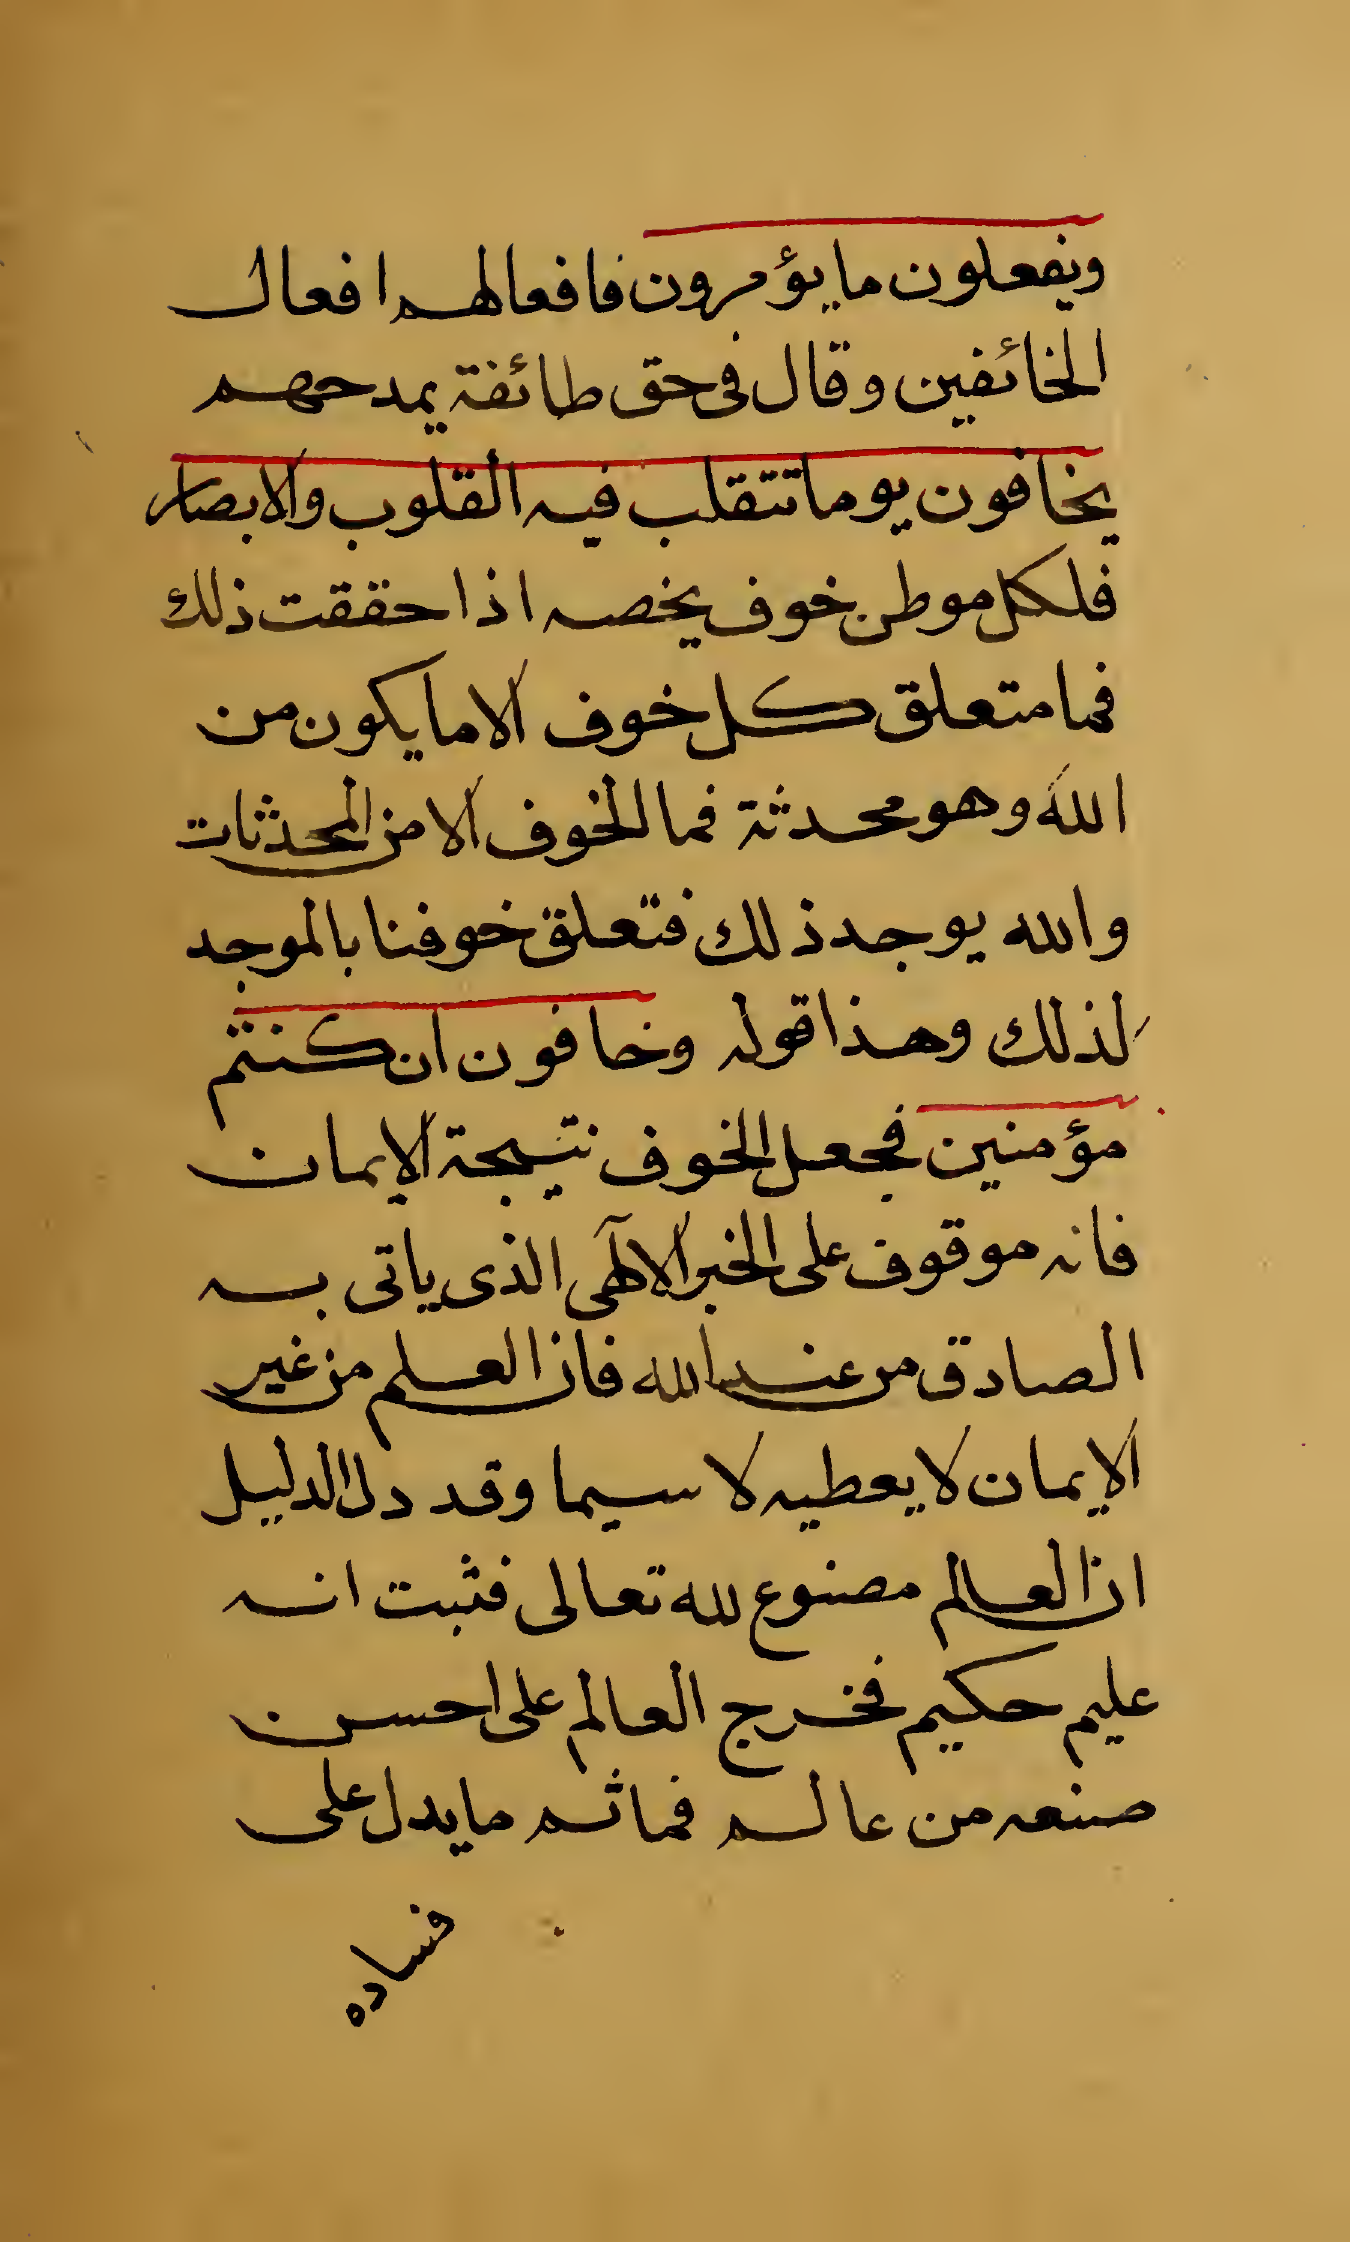 ويفعلون ما يؤمرون فافعالهم افعال
الخائفين وقال فى حق طائفة يمدحهم
يخافون يوما تتقلب فيه القلوب والابصار
فلكل موطن خوف يخصه اذا حققت ذلك
فما متعلق كل خوف الا ما يكون من
الله وهو محدثة فما الخوف الا من المحدثات
والله يوجد ذلك فتعلق خوفنا بالموجد
لذلك وهذا قوله وخافون ان كنتم
مؤمنين فجعل الخوف نتيجة الايمان
فانه موقوف على الخبر الالٓهى الذى ياتى به
الصادق من عند الله فان العلم من غير
الايمان لا يعطيه لا سيما وقد دل الدليل
ان العالم مصنوع لله تعالى فثبت انه
عليم حكيم فخرج العالم على احسن
صنعه من عالم فما ثم ما يدل على
فساده